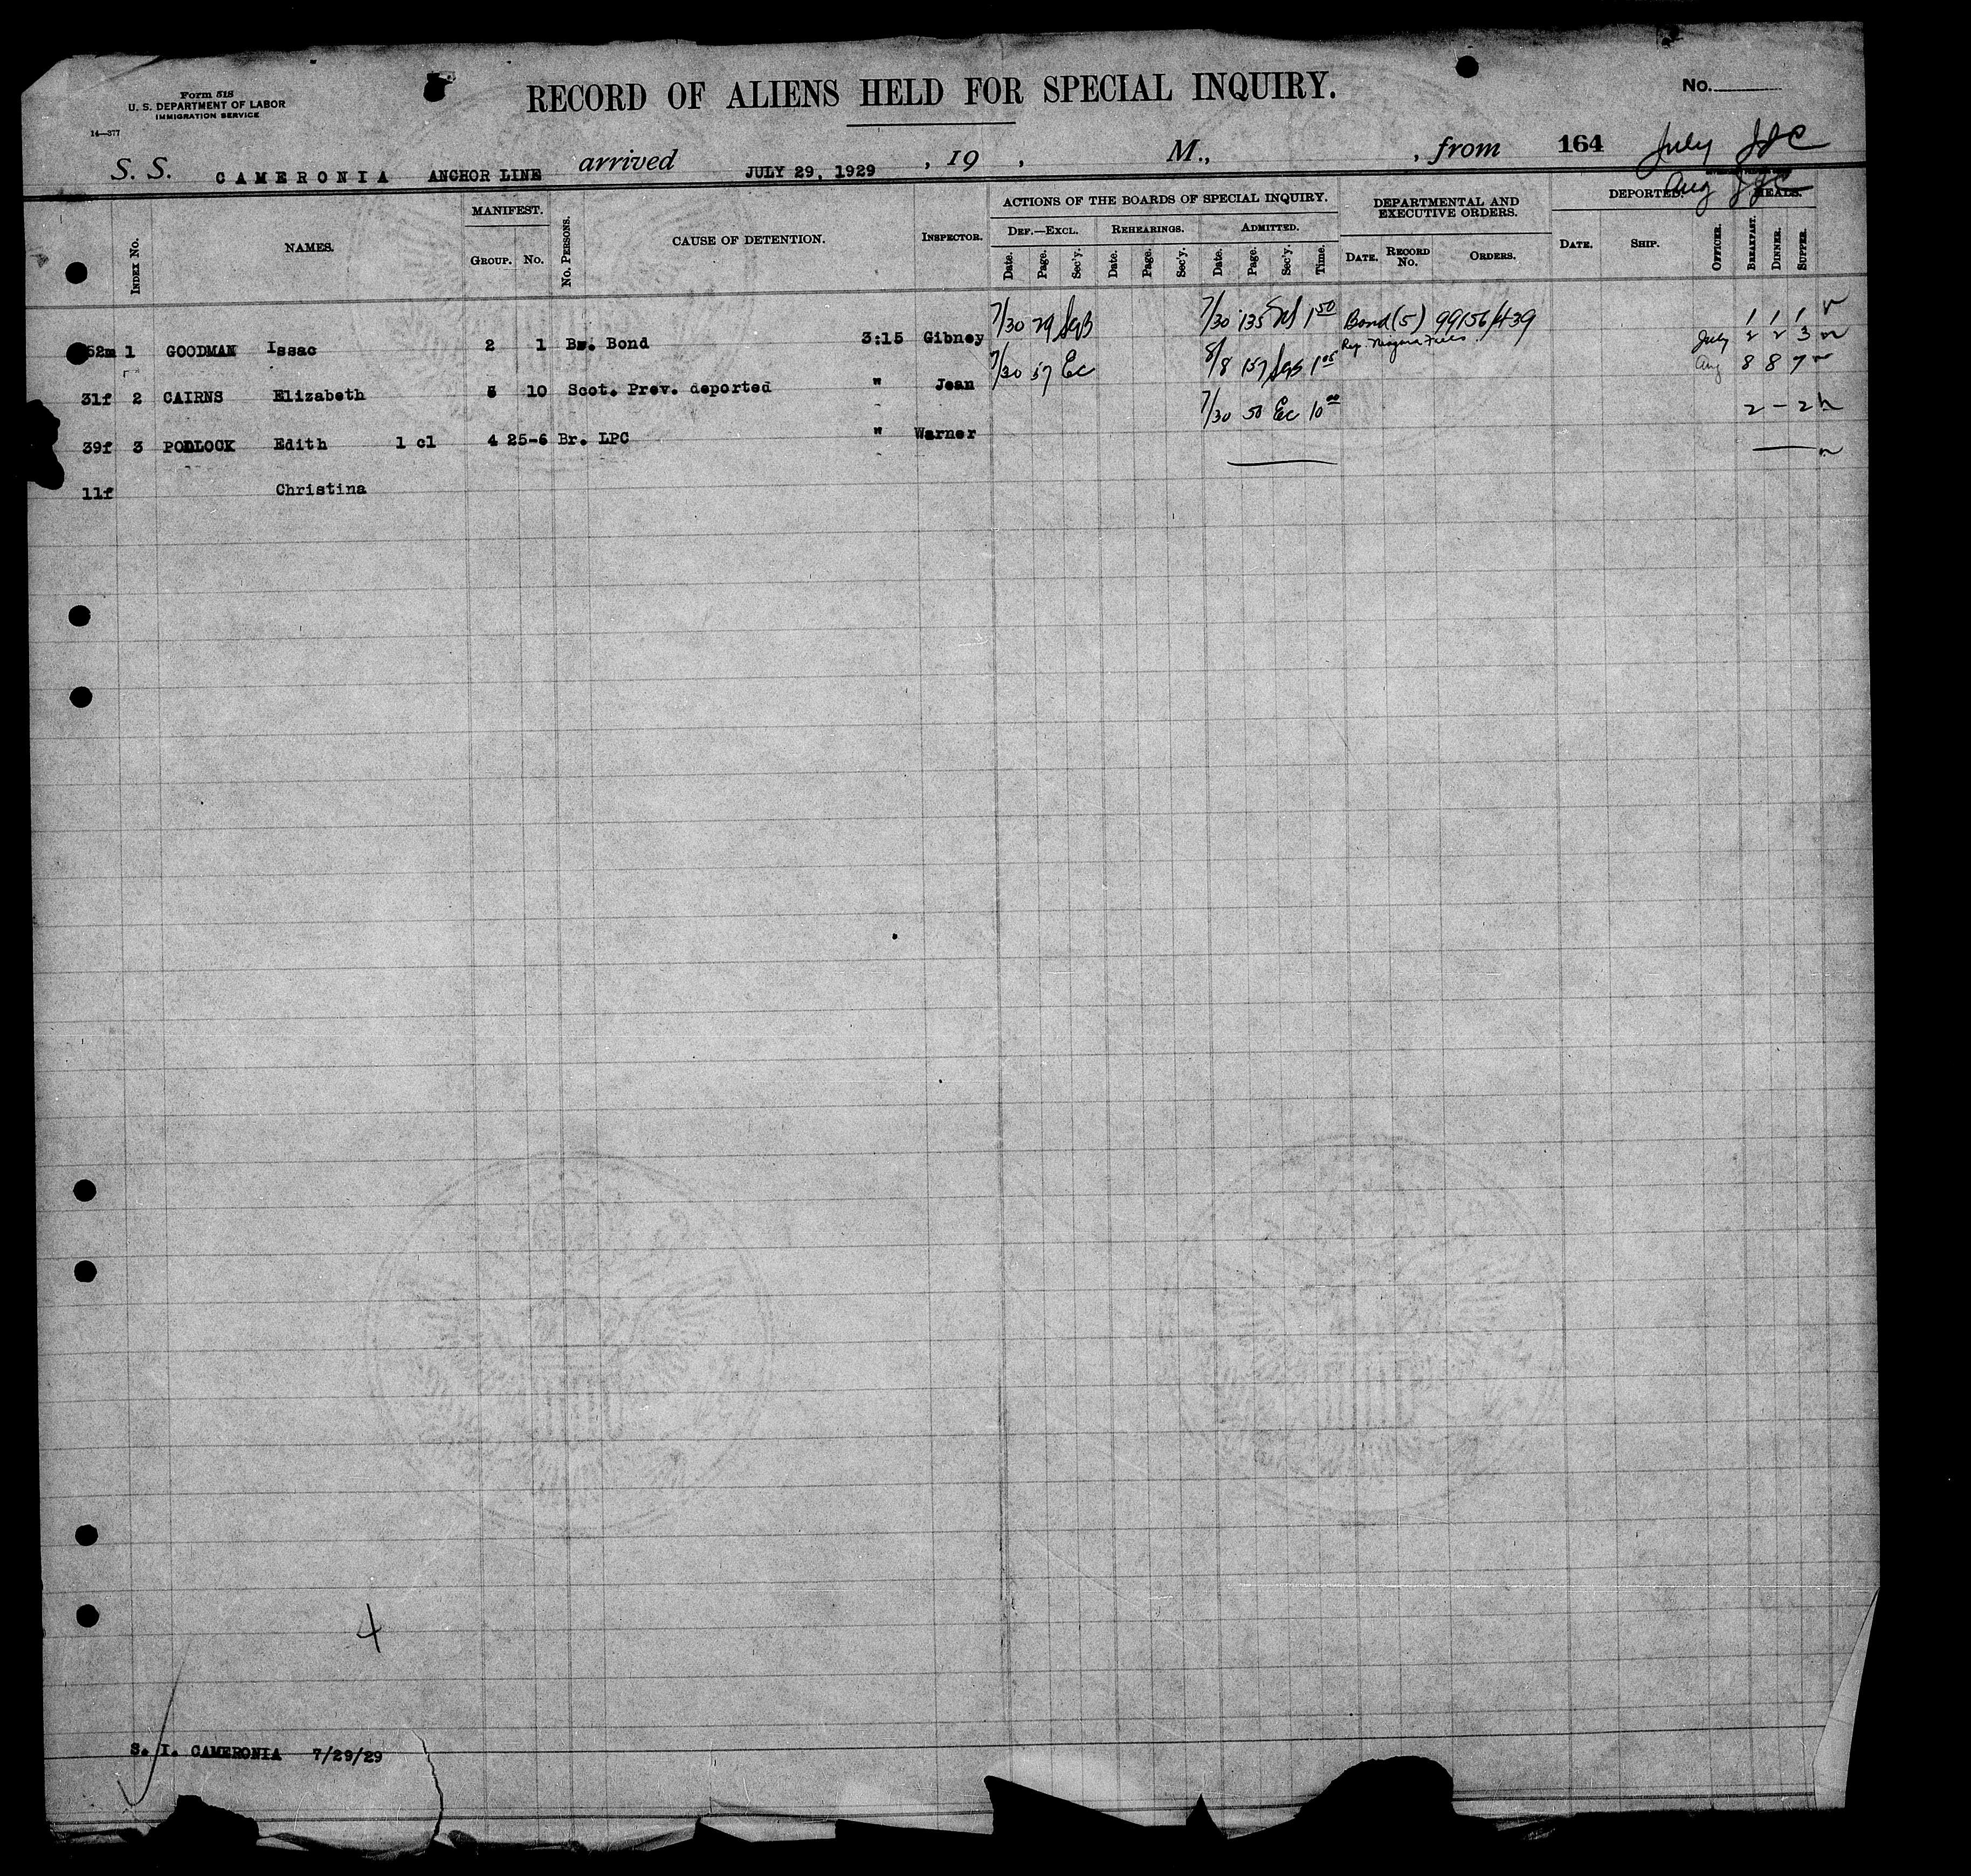 Form 518
U. S. DEPARTMENT OF LABOR
IMMIGRATION SERVICE
14—377
RECORD OF ALIENS HELD FOR SPECIAL INQUIRY.
No.
S. S. CAMERONIA ANCHOR LINE arrived JULY 29, 1929 , 19 , M., , from 164 July JJC
Aug JJC
INDEX No. NAMES. MANIFEST. GROUP. No. No. PERSONS. CAUSE OF DETENTION. INSPECTOR.
ACTIONS OF THE BOARDS OF SPECIAL INQUIRY.
DEF.—EXCL. REHEARINGS. ADMITTED.
Date. Page. Sec'y. Date. Page. Sec'y. Date. Page. Sec'y. Time.
DEPARTMENTAL AND EXECUTIVE ORDERS.
DATE. RECORD No. ORDERS.
DEPORTED. MEALS.
DATE. SHIP. OFFICER. BREAKFAST. DINNER. SUPPER.
52m 1 GOODMAN Issac 2 1 Br. Bond 3:15 Gibney 7/30 29 7/30 135 1 50 Bond (5) 99156/439 1 1 1
Rep. Niagara Falls
July 2 2 3
31f 2 CAIRNS Elizabeth 5 10 Scot. Prev. deported " Jean 7/30 57 Ec 8/8 157 1 05 Aug 8 8 7
39f 3 PODLOCK Edith 1 cl 4 25-6 Br. LPC " Warner 7/30 50 Ec 10 00 2 – 2
11f Christina
4
S. I. CAMERONIA 7/29/29